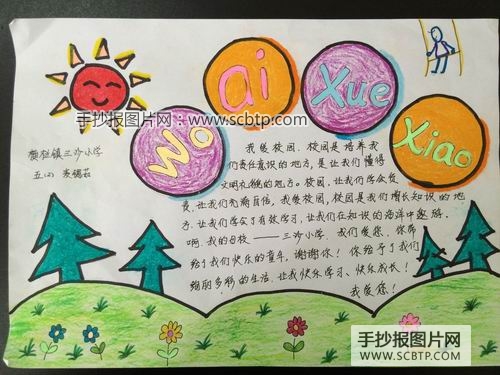 手抄报图片网:
www.scbtp.com
Wo
ai
Xue
Xiao
镇三沙小学
五.(2)
我爱校园,校园是培养我
们责任意识的地方,是让我们懂得
文明礼貌的地方。校园,让我们学会负
责,让我们充满自信,我爱校园,校园是我们增长知识的地
方,让我们学会了有效学习,让我们在知识的海洋中遨游。
啊,我的母校——三沙小学 我们爱您,你带
给了我们快乐的童年,谢谢你!你给予了我们
绚丽多彩的生活,让我快乐学习、快乐成长!
我爱您!
手抄报图片网
WWW.SCBTP.COM